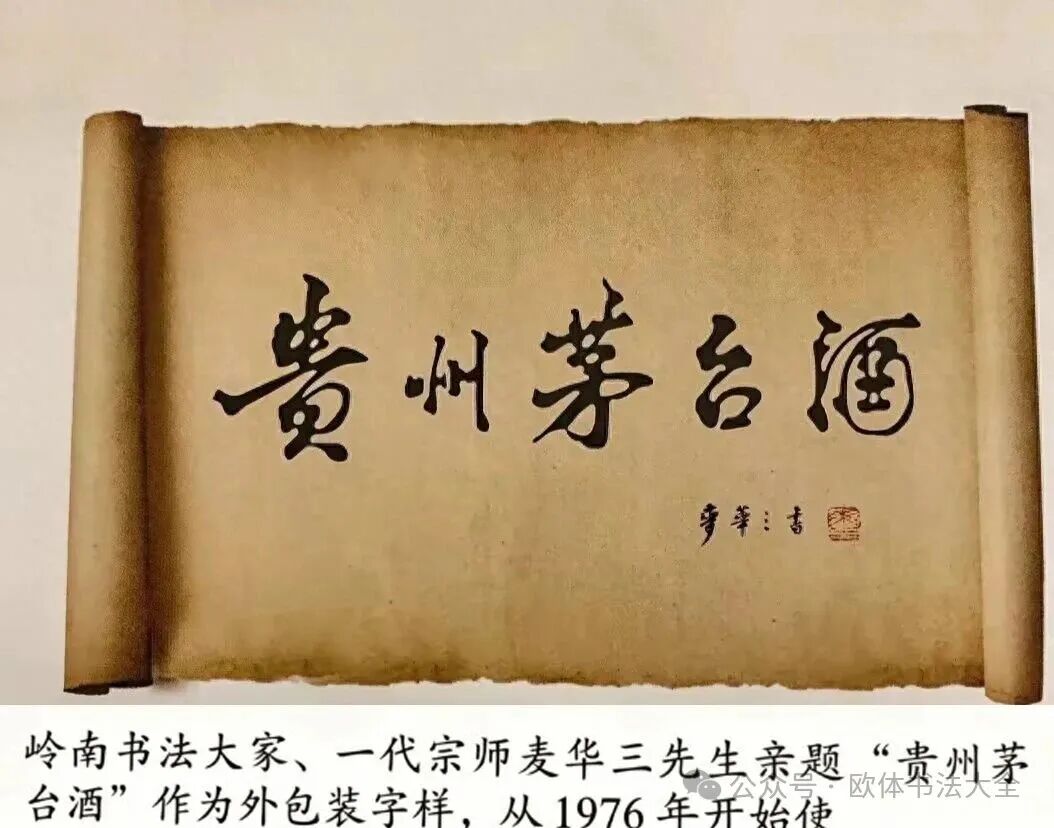 貴州茅台酒
麦華三書
岭南书法大家、一代宗师麦华三先生亲题“贵州茅
台酒”作为外包装字样，从1976年开始使
公众号·欧体书法大全